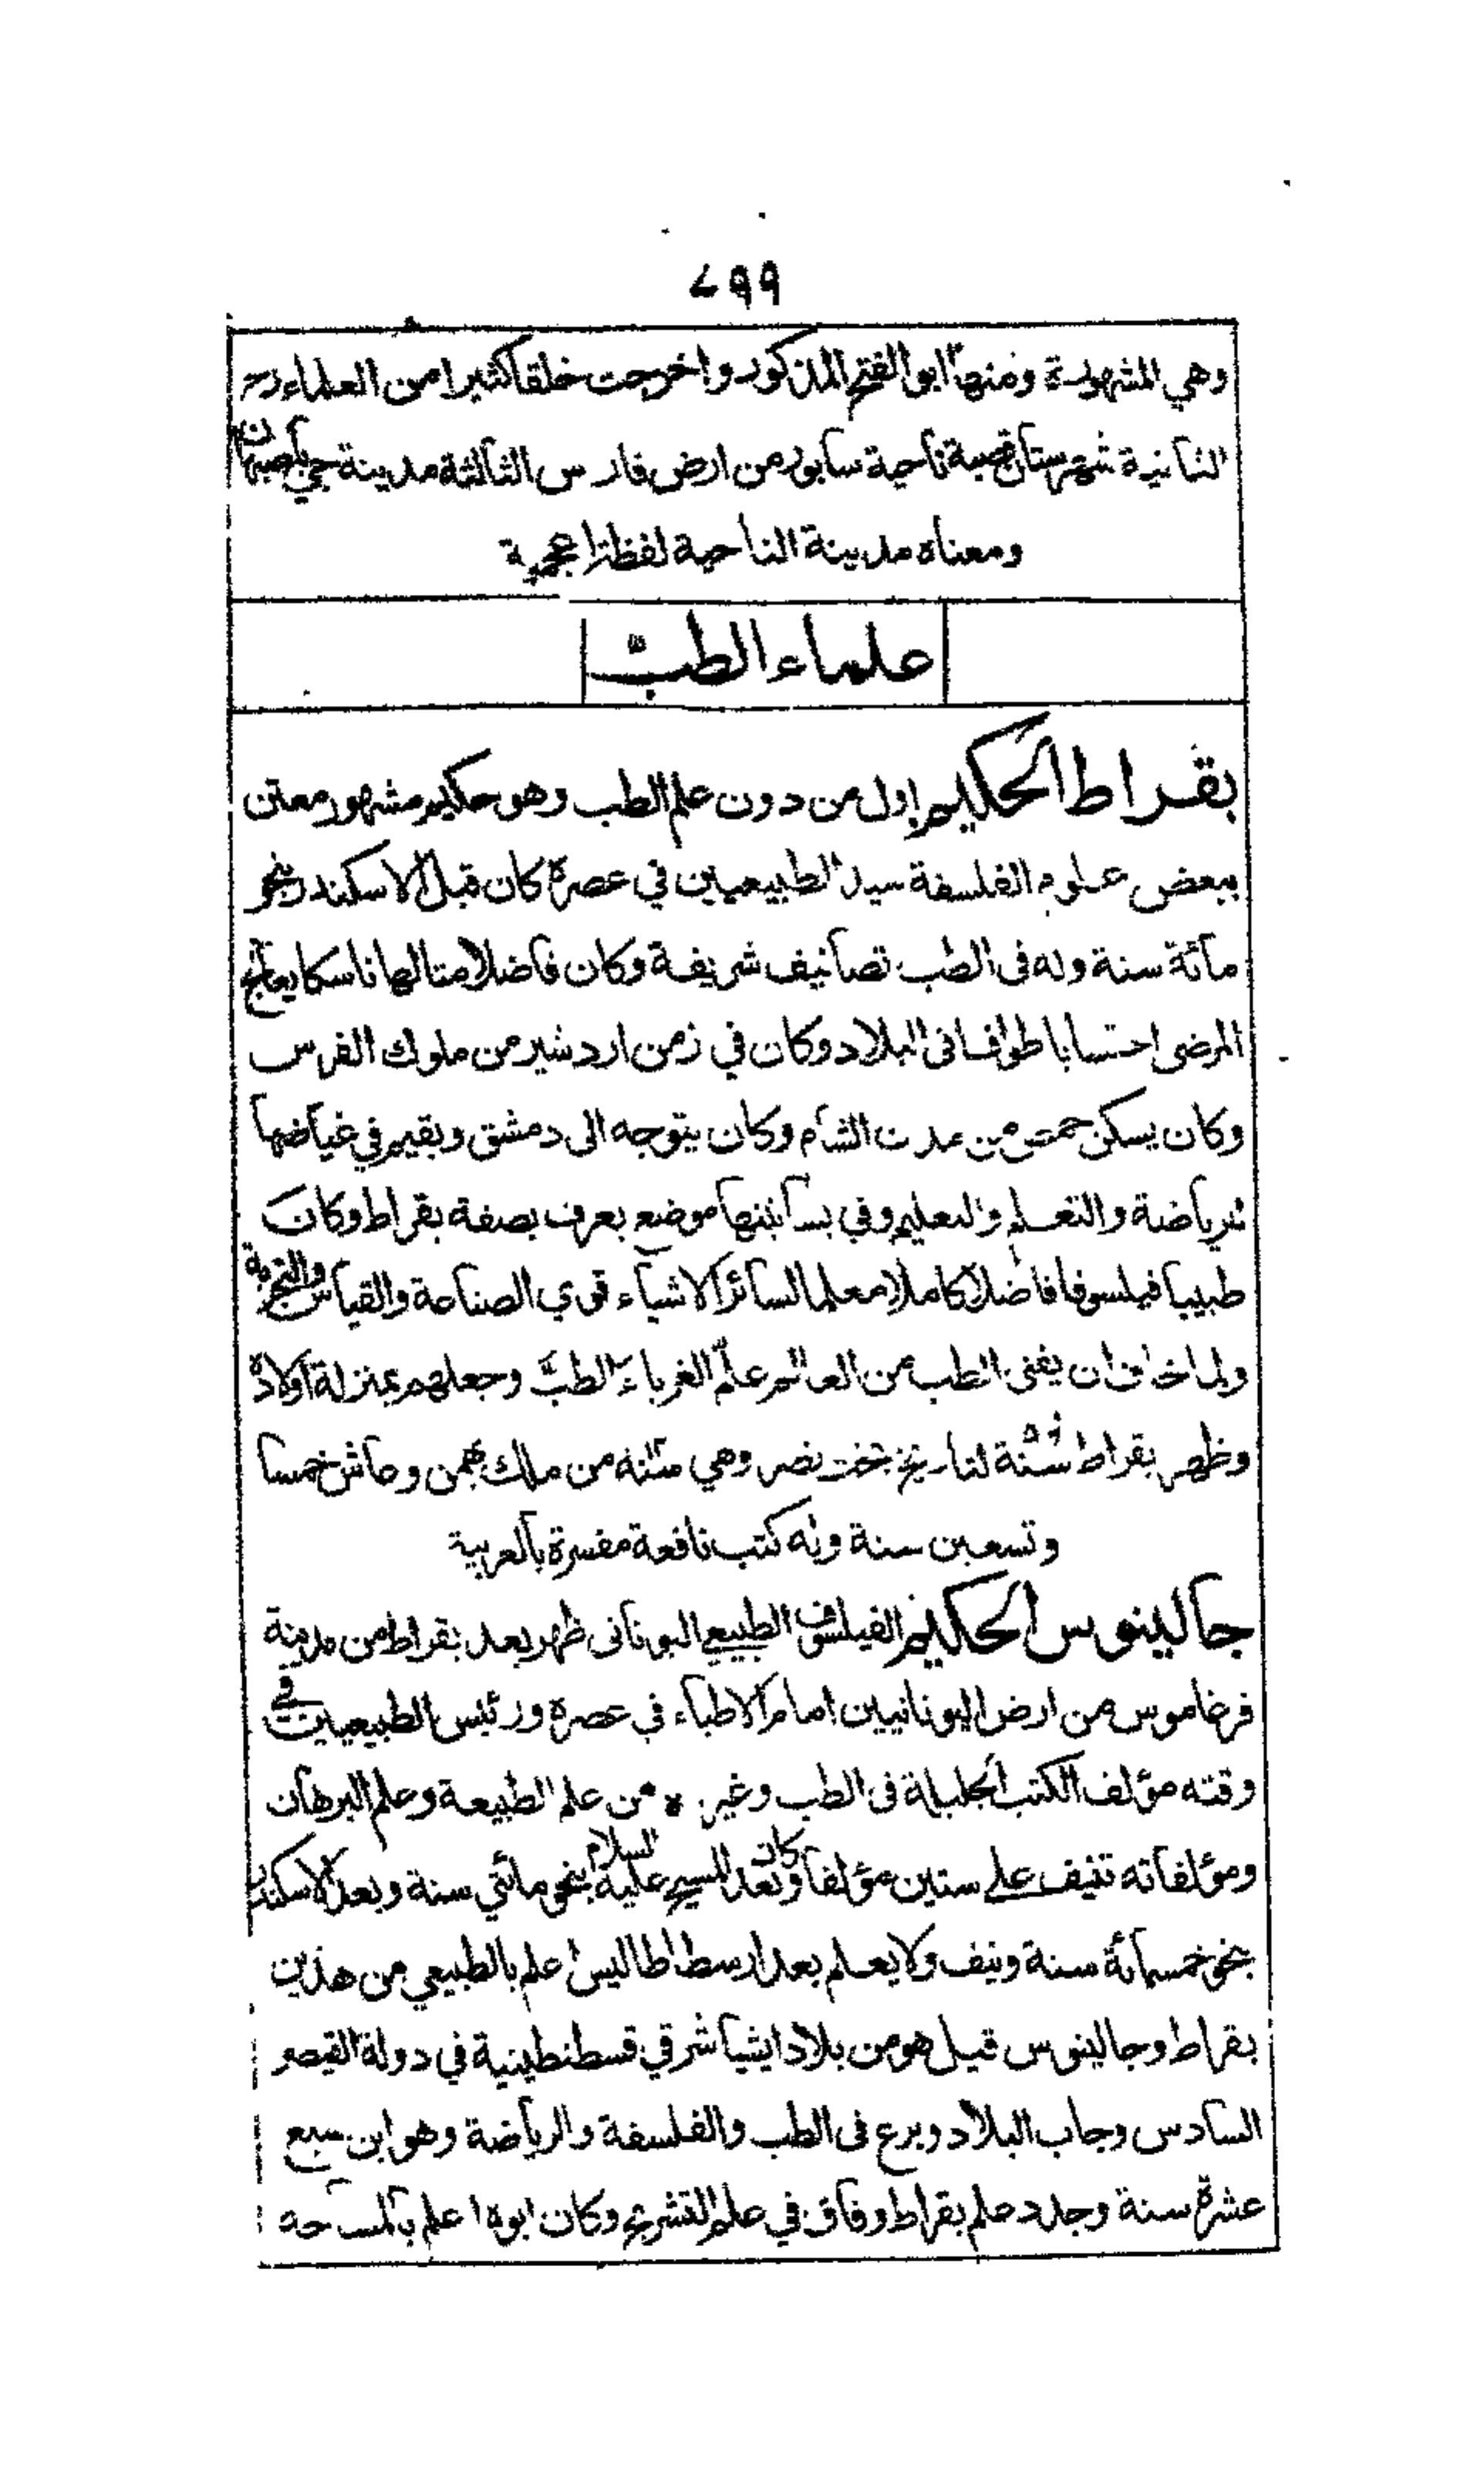 ٧٩٩
وهي المشهورة ومنها ابو الفتح المذكور واخرجت خلقا كثيرا من العلماء رح
الثانية شهرستان قصبة ناحية سابور من ارض فارس الثالثة مدينة جي باصبهان
ومعناه مدينة الناحية لفظة اعجمية
علماء الطب
بقراط الحكيم اول من دون علم الطب وهو حكيم مشهور معتن
ببعض علوم الفلسفة سيد الطبيعيين في عصره كان قبل الاسكندر بنحو
مائة سنة وله في الطب تصانيف شريفة وكان فاضلا متالها ناسكا يعالج
المرضى احتسابا طوافا في البلاد وكان في زمن اردشير من ملوك الفرس
وكان يسكن حمص من مدن الشام وكان يتوجه الى دمشق ويقيم في غياضها
للرياضة والتعلم والتعليم وفي بساتينها موضع يعرف بصفة بقراط وكان
طبيبا فيلسوفا فاضلا كاملا معلما لسائر الاشياء قوي الصناعة والقياس والتجربة
ولما خاف ان يفنى الطب من العالم علم الغرباء الطب وجعلهم بمنزلة اولاده
وظهر بقراط سنة لتاريخ بخت نصر وهي سنة من ملك بهمن وعاش خمسا
وتسعين سنة وله كتب نافعة مفسرة بالعربية
جالينوس الحكيم الفيلسوف الطبيعي اليوناني ظهر بعد بقراط من مدينة
فرغاموس من ارض اليونانيين امام الاطباء في عصره ورئيس الطبيعيين في
وقته مؤلف الكتب الجليلة في الطب وغيره من علم الطبيعة وعلم البرهان
ومؤلفاته تنيف على ستين مؤلفا وكان بعد المسيح عليه السلام بنحو مائتي سنة وبعد الاسكندر
بنحو خمسمائة سنة ونيف ولا يعلم بعد ارسطاطاليس اعلم بالطبيعي من هذين
بقراط وجالينوس قيل هو من بلاد ايشيا شرقي قسطنطينية في دولة القيصر
السادس وجاب البلاد وبرع في الطب والفلسفة والرياضة وهو ابن سبع
عشرة سنة وجدد علم بقراط وفاق في علم التشريح وكان ابوه اعلم بالمساحه